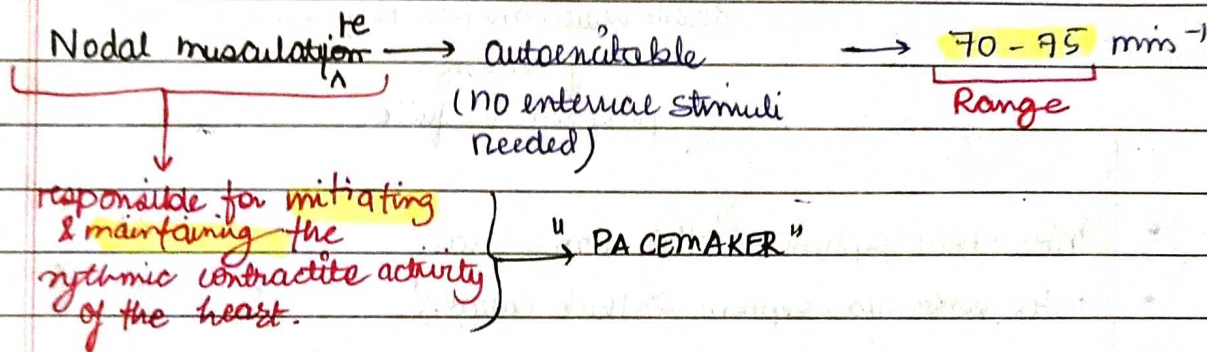 Nodal musculature → autoexcitable → 70 - 75 min⁻¹
(no external stimuli
needed)
Range
responsible for initiating
& maintaining the
rythmic contractile activity
of the heart.
"PACEMAKER"